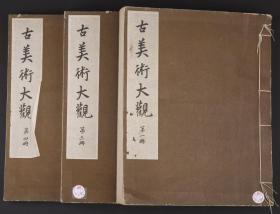 古美術大觀
第一冊
古美術大觀
第二冊
古美術大觀
第四冊